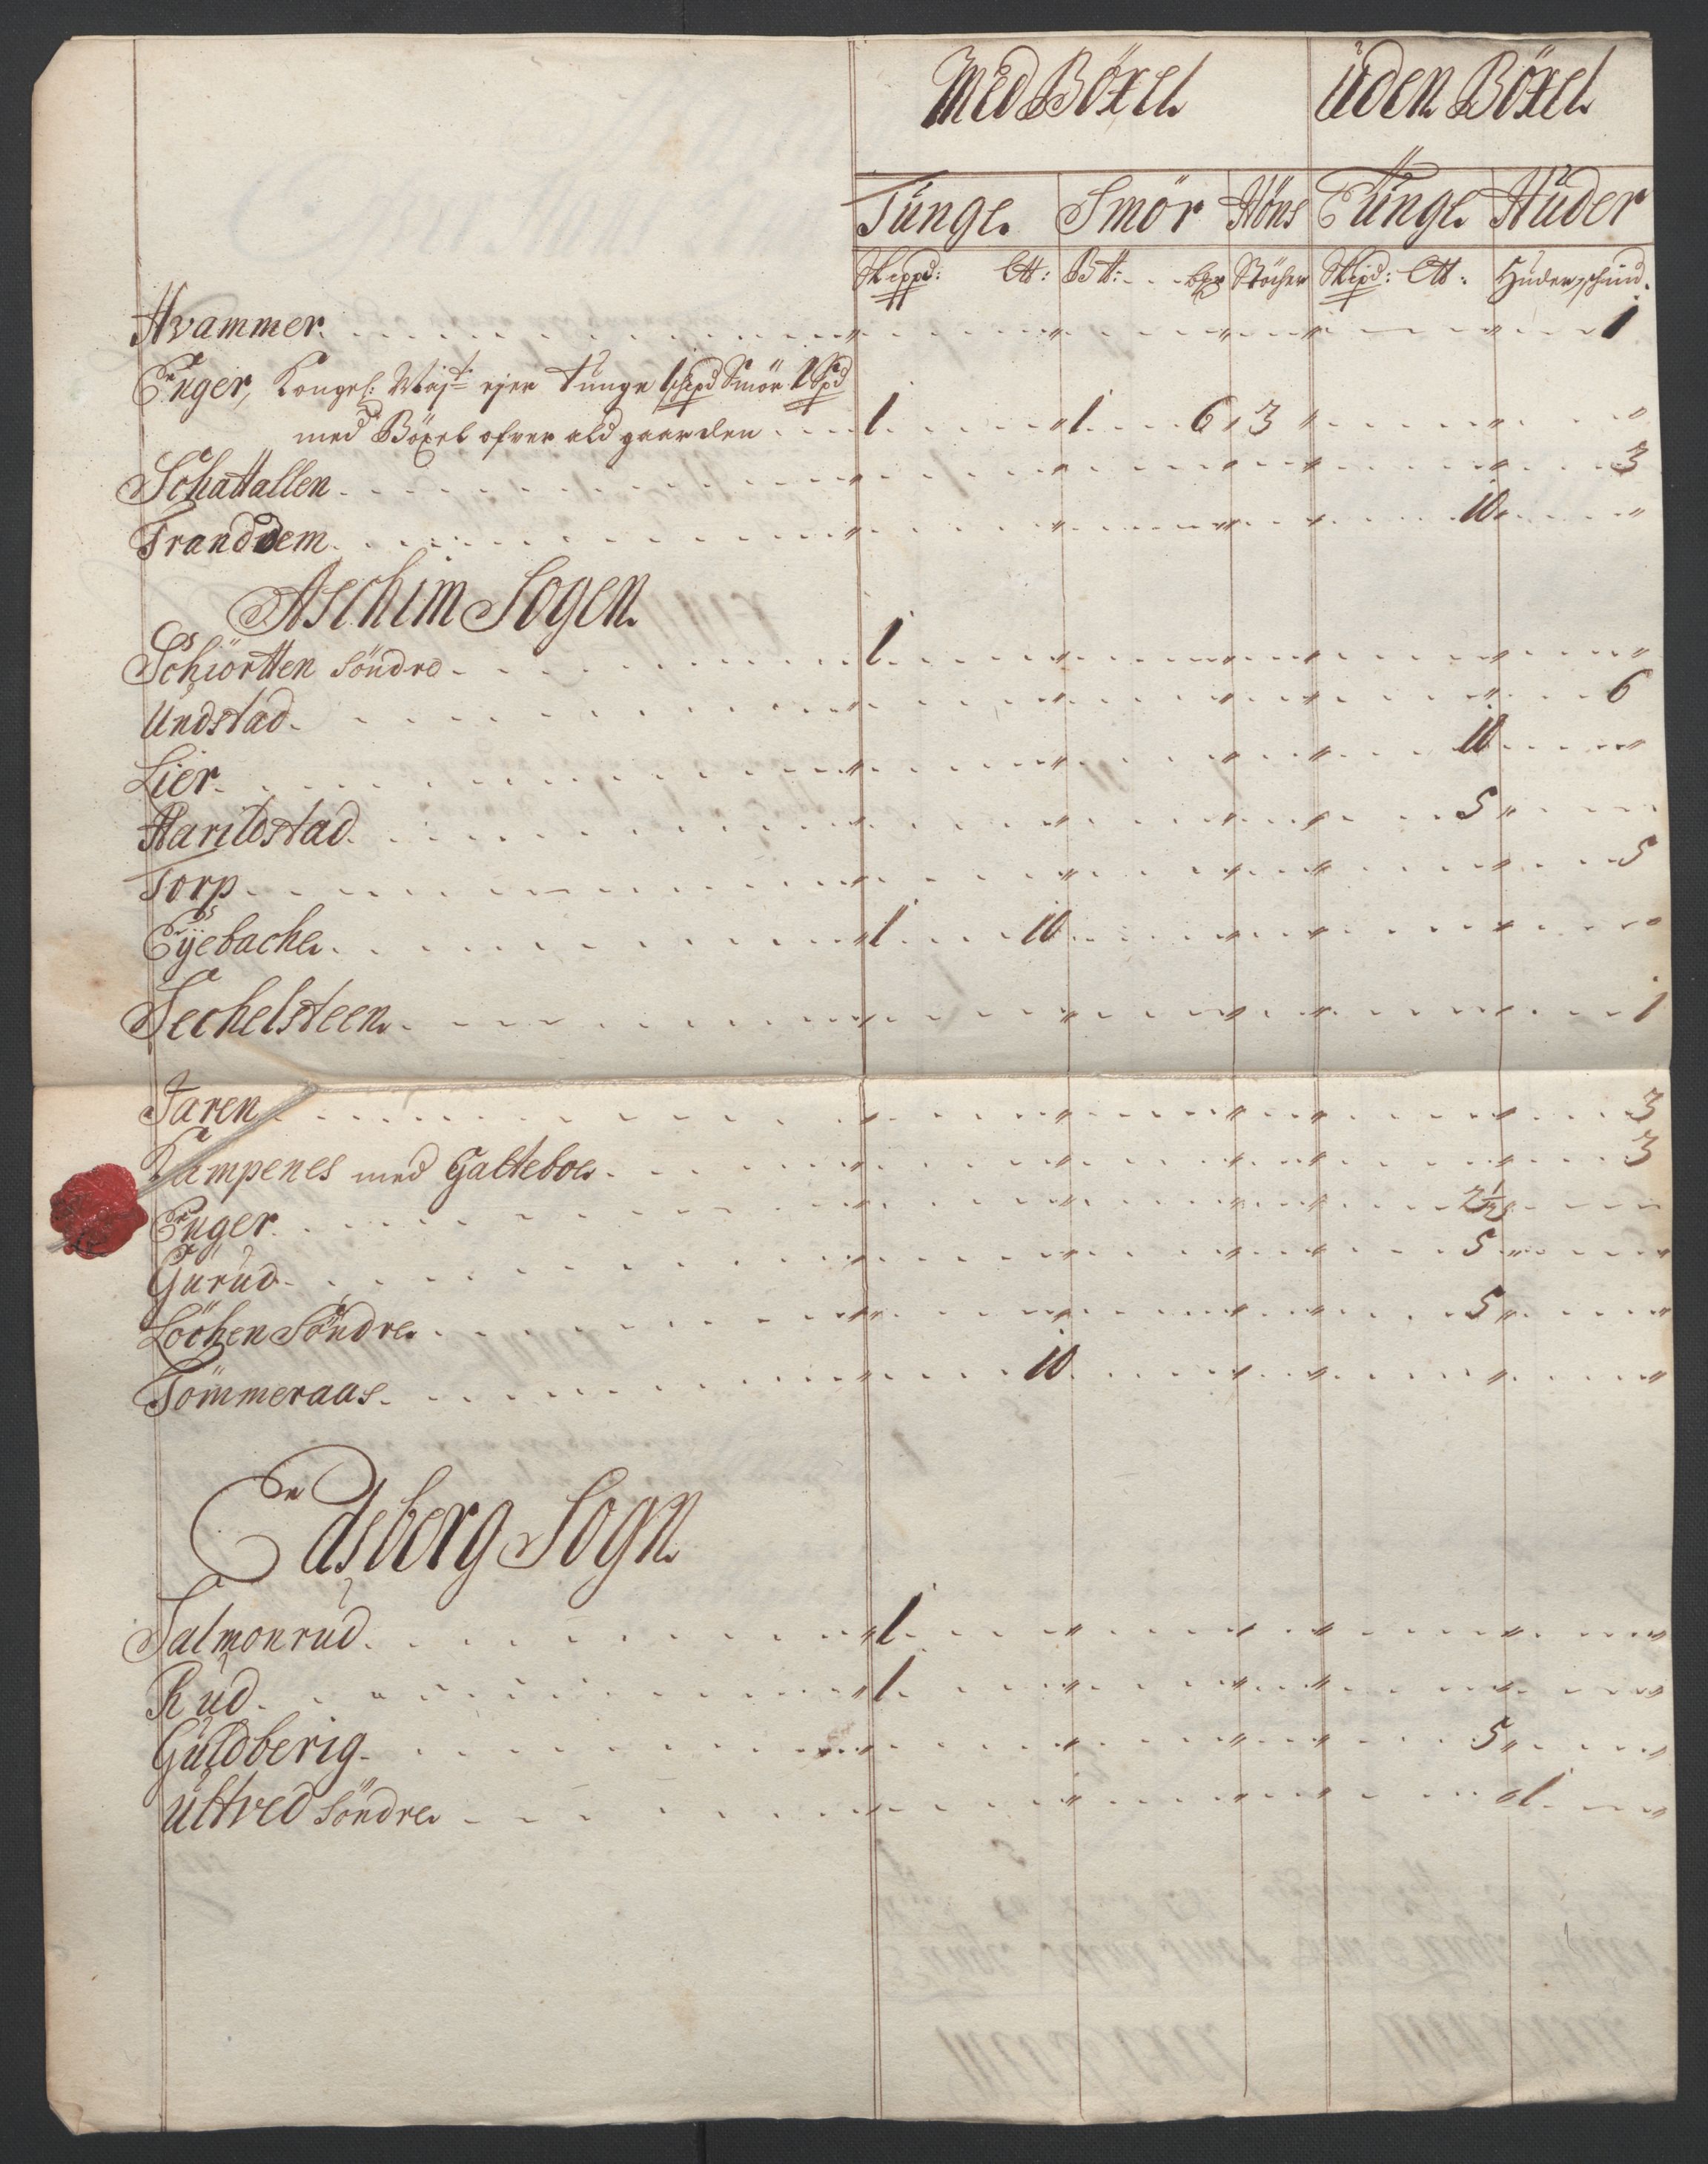 Med Böxel. Uden Böxel.
Tunge. Smör Höns Tunge. Huder
Skippd: Ltt: Stöcher Skipd: Ltt: Huder, schind.
Hvammer. 1
Enger, Kongel: Maj:t ejer Tunge 1 schpd Smör 1 Spd
med Böxel ofver ald gaarden 1 1 6 3
Schattallen 3
Trandem 10
Aschim Sogen.
Schiortten Söndre 1
Undstad 6
Lier 10
Harildstad 5
Torp 5
Eÿebache 1 10
Sechelsteen 1
Jaren 3
Kampenes med Galteboe 3
Enger 2½
Garud 5
Löchen Söndre 5
Tömmeraas 10
Edsberg Sogn.
Salmonrud 1
Rud 1
Guldberig 5
Ultved Söndre 1